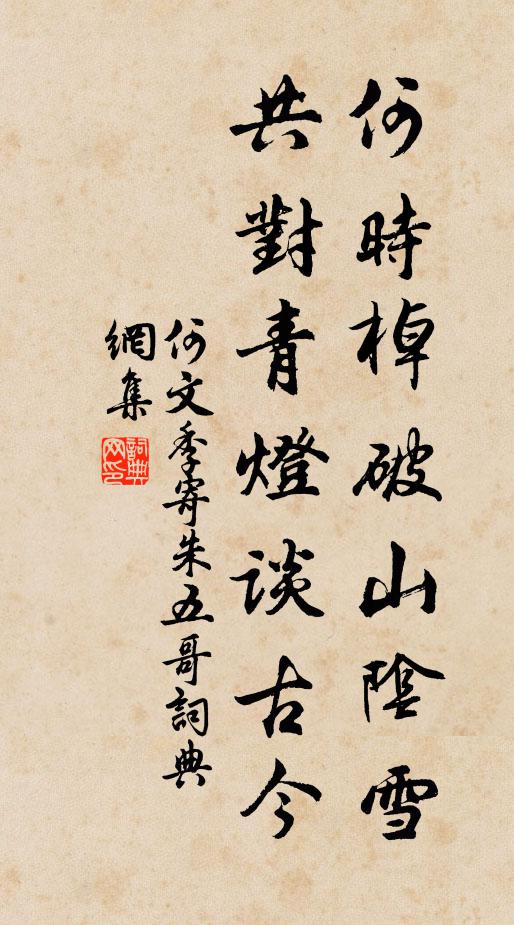 何時棹破山陰雪
共對青燈談古今
何文季寄朱五哥詞典
網集
詞典
网印